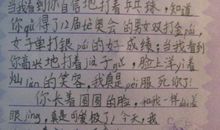 当我看到你自信地打着乒乓球,知道
你qǔ得了12届世奥会的男女双打金pái,
女子单打银pái的好成绩;当我看到
你高兴地打着这子gé,脸上洋溢
灿làn的笑容,我真pèi服死你了!
你长着圆圆的脸,和我一样
眼jīng,真是可爱极了!今天,我